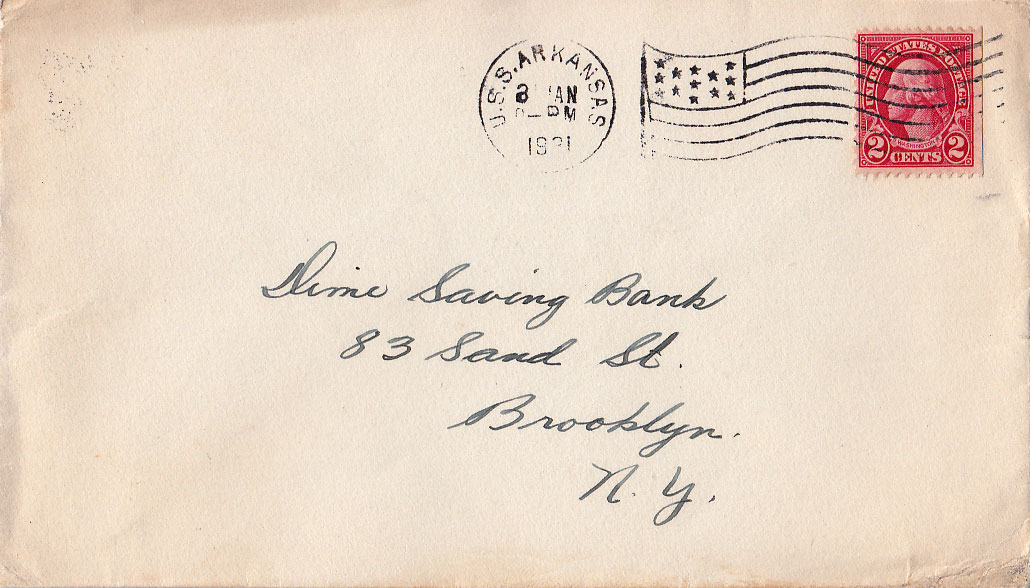 U.S.S. ARKANSAS
JAN
PM
UNITED STATES POSTAGE
WASHINGTON
2 CENTS 2
Dime Saving Bank
83 Sand St.
Brooklyn.
N. Y.